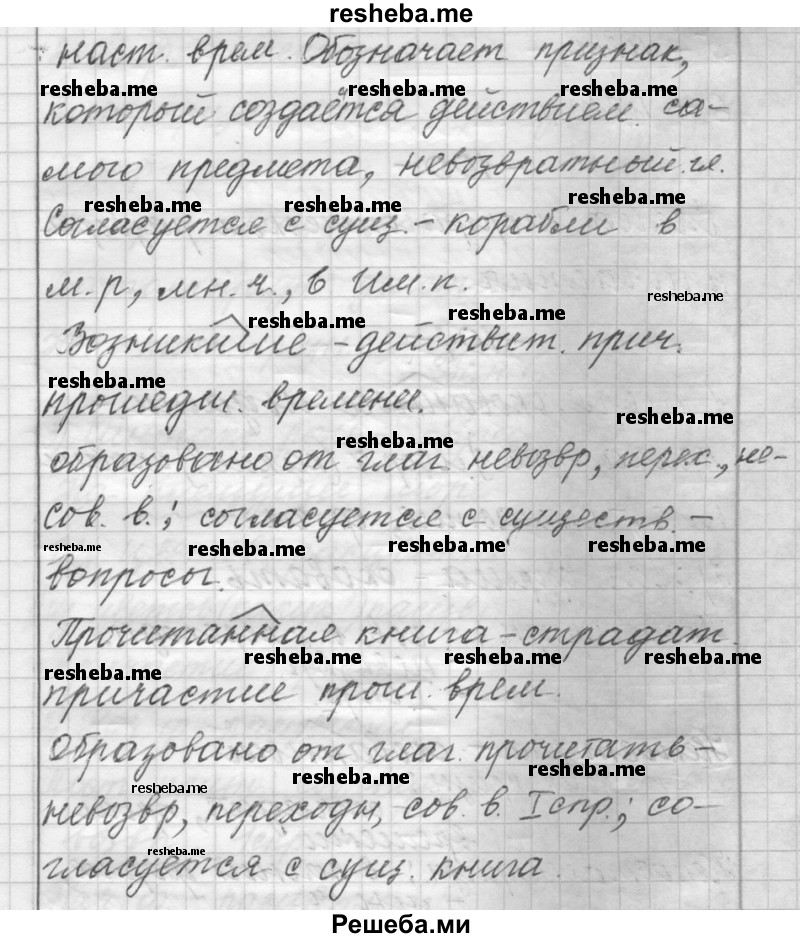 resheba.me
наст. врем. Обозначает признак,
resheba.me resheba.me resheba.me
который создаётся действием са-
мого предмета, невозвратный гл.
resheba.me resheba.me resheba.me
Согласуется с сущ. - корабли в
м.р, мн.ч., в Им.п.
resheba.me
resheba.me resheba.me
Возникшие - действит. прич.
resheba.me
прошедш. времени.
resheba.me
resheba.me
образовано от глаг невозвр, перех., не-
сов. в.; согласуется с существ. -
resheba.me resheba.me resheba.me resheba.me
вопросы.
Прочитанная книга - страдат.
resheba.me resheba.me resheba.me resheba.me
причастие прош. врем.
Образовано от глаг. прочитать -
resheba.me resheba.me
resheba.me
невозвр, переходн, сов. в. I спр.; со-
resheba.me
гласуется с сущ. книга.
Решеба.ми